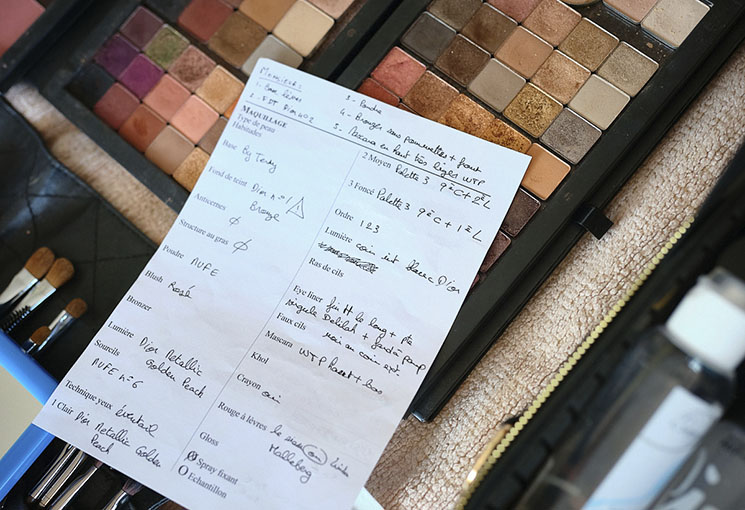 1 -
2 - FDT Dior 402
3 - Poudre
4 - Bronzer sous pommettes + front
5 - Mascara en haut très léger WTP
MAQUILLAGE
Type de peau
Habitudes
Base By Terry
Fond de teint Dior n=1
Bronze
Anticernes ∅
Structure au gras ∅
Poudre MUFE
Blush Rosé
Bronzer
Lumière Dior Metallic
Golden Peach
Sourcils
MUFE n=6
Technique yeux éventail
1 Clair Dior Metallic Golden
Peach
2 Moyen Palette 3 9èC + 2èL
3 Foncé Palette 3 9èC + 1èL
Ordre 123
Lumière coin int blanc Dior
Ras de cils
Eye liner fin tt le long + pte
virgule Delilah +
Faux cils
mais au coin ext.
Mascara WTP haut + bas
Khol
Crayon oui
Rouge à lèvres le
Malleberg
Gloss
Ø Spray fixant
O Echantillon